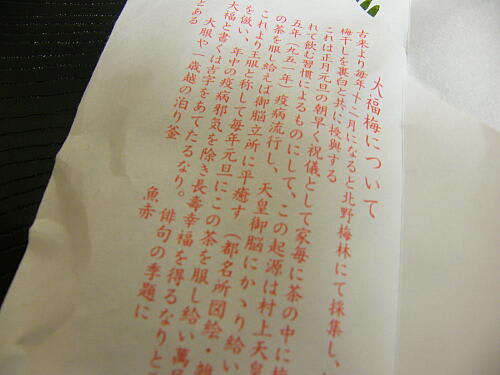 大福梅について
古来より毎年十二月になると北野梅林にて採集し、
梅干しを裏白と共に授與する
これは正月元旦の朝早く祝儀として家毎に茶の中に梅
れて飲む習慣によるものにして、この起源は村上天皇
五年(九五一年)疫病流行し、天皇御脳にかゝり給い
の茶を服し給えば御脳立所に平癒す (都名所図絵・雑
これより王服と称して毎年元旦にこの茶を服し給い萬
を倣い、年中の疫病邪気を除き長壽幸福を得るなりと
大福と書くは吉字をあてたるなり。 俳句の季題に
とある
大服や 一歳越の泊り釜 魚赤